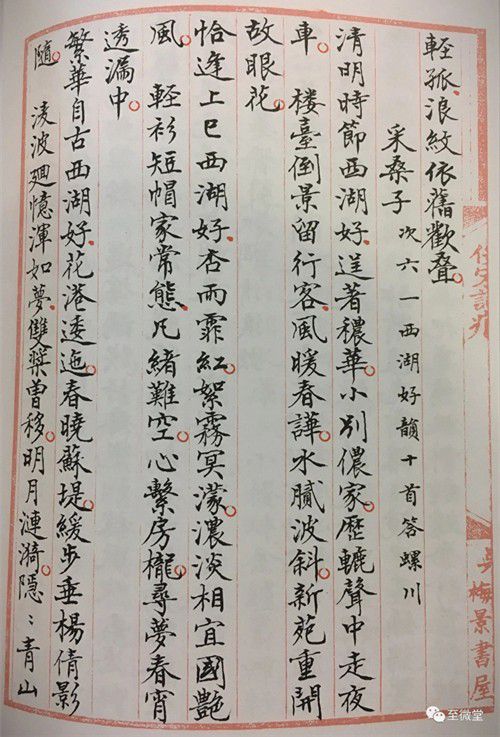 輕孤、浪紋依舊歡疊。
采桑子 次六一西湖好韻十首答螺川
清明時節西湖好、逞著穠華。小別儂家。歷轆聲中走夜
車。 楼臺倒景留行客、風暖春譁。水膩波斜。新苑重開
故眼花。
恰逢上巳西湖好、杏雨霏紅。絮霧冥濛。濃淡相宜國艷
風。 輕衫短帽家常態、凡緒難空。心繫房櫳。尋夢春宵
透漏中。
繁華自古西湖好、花港逶迤。春曉蘇堤。緩步垂楊倩影
隨。 淩波廻憶渾如夢、雙槳曾移。明月漣漪。隱〻青山
梅景書屋
至微堂